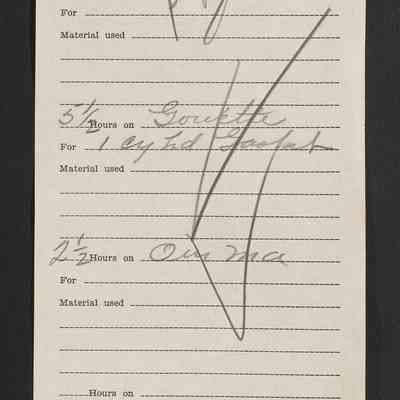 For
Material used
5 1/2 Hours on Gourette
For 1 cy hd Gasket
Material used
2 1/2 Hours on
For
Material used
Hours on